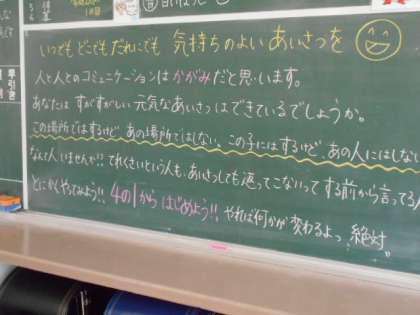 いつでも どこでも だれにでも 気持ちのよい あいさつを
人と人とのコミュニケーションは かがみ だと思います。
あなたは すがすがしい 元気なあいさつは できているでしょうか。
この場所ではするけど、あの場所ではしない、この子にはするけど、あの人にはしない
なんて人いませんか!? てれくさいという人も、あいさつしても返ってこないって する前から言ってる人
とにかくやってみよう!! 4の1から はじめよう!! やれば何かが 変わるよっ 絶対。